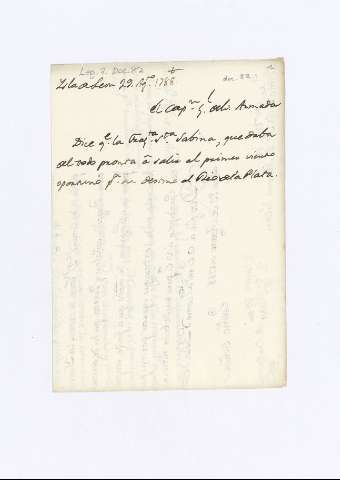 Leg. 2. Doc. 82
doc. 82.
Isla de Leon 29. Ag.to 1788
El Cap.n G.l de la Armada
Dice q.e la Frag.ta S.ta Sabina, quedaba
del todo pronta â salir al primer viento
oportuno p.a su destino al Rio de la Plata.